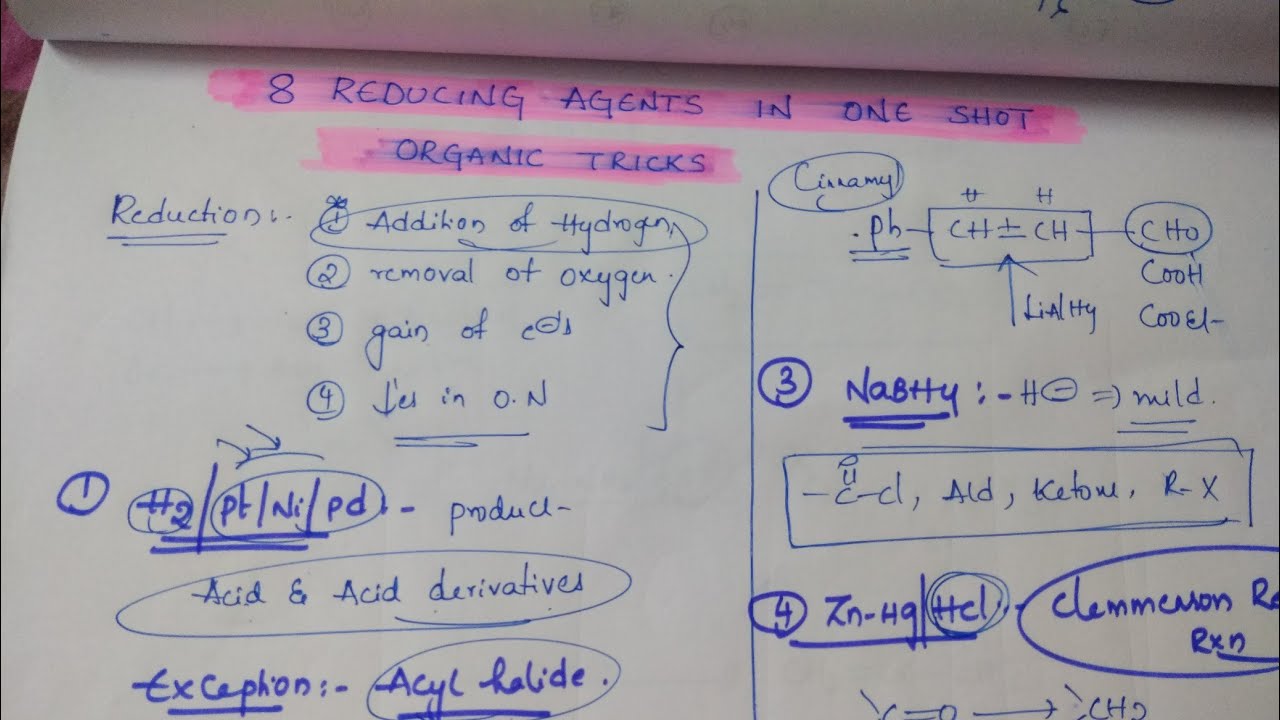 8 REDUCING AGENTS IN ONE SHOT
ORGANIC TRICKS
Reduction:-
① Addition of Hydrogen
② removal of oxygen.
③ gain of e⊖s
④ ↓es in O.N
① H2/Pt/Ni/Pd :- product-
Acid & Acid derivatives
Exception:- Acyl halide.
Cinnamyl
H H
Ph-CH=CH-CHO
COOH
LiAlH4 COOEt-
③ NaBH4 :- H⊖ => mild.
O
-C-Cl, Ald, Ketone, R-X
④ Zn-Hg/HCl :- Clemmenson Re
Rxn
C=O → CH2